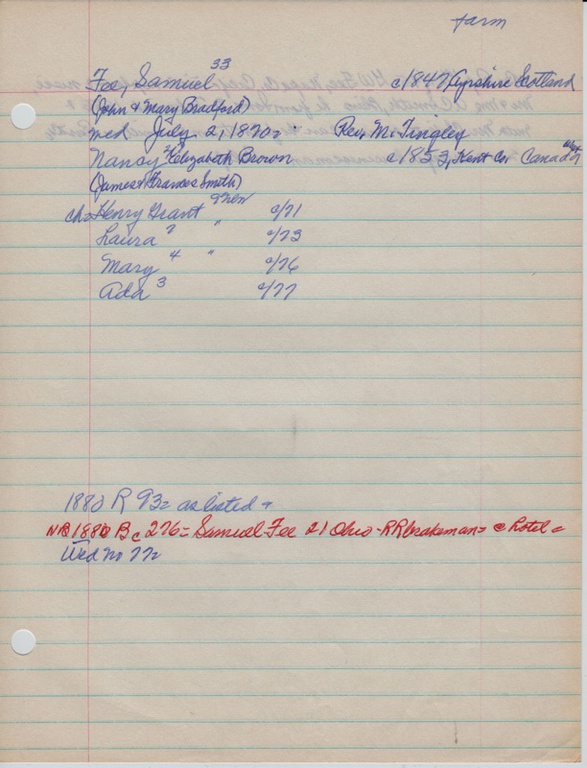 Farm
Fee, Samuel 33 c/1847, Ayrshire Scotland
(John & Mary Bradford)
wed July 21, 1870 = Rev. M. Tingley
Nancy 27 Elizabeth Brown c/1853, Kent Co. Canada
(James & Frances Smith)
ch = Henry Grant 9 New c/71
Laura 7 " c/73
Mary 4 " c/76
Ada 3 c/77
1880 R 93 = as listed =
NB 1880 Bc 276 = Samuel Fee 21 Ohio - RR brakeman = @ hotel =
Wed no 772